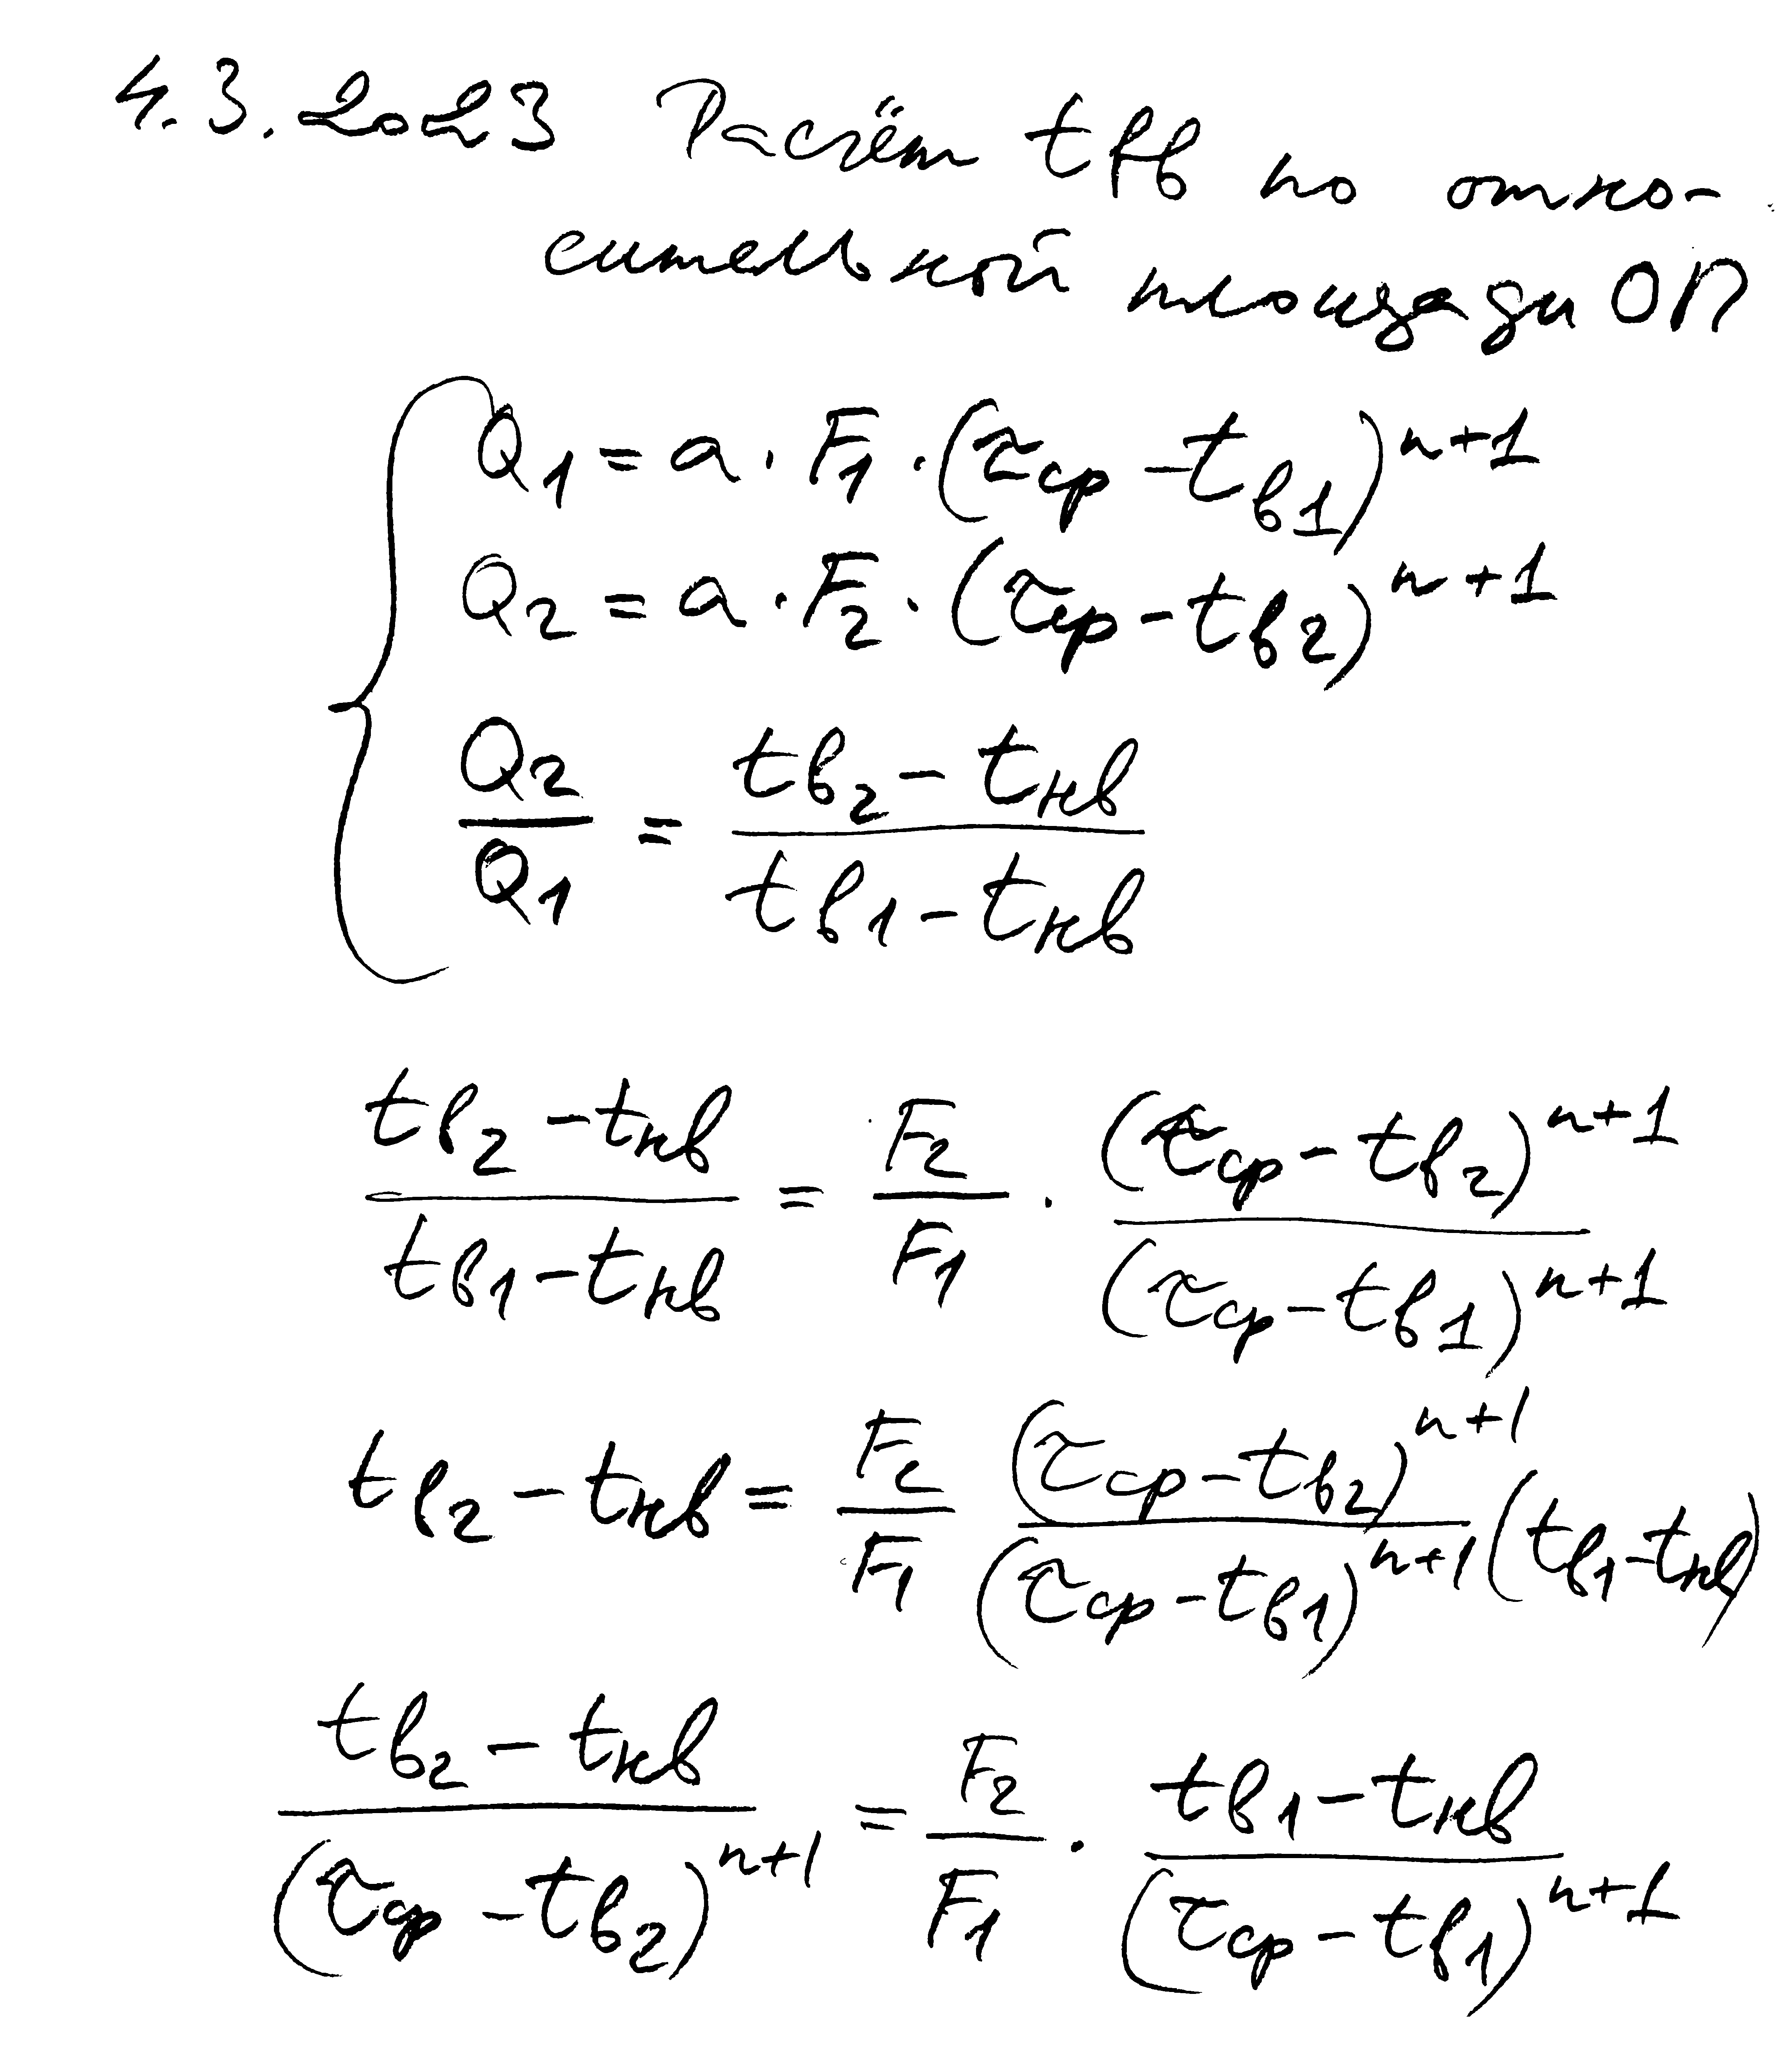 4.3.2023 Расчёт tвв по отно-
сительной площади ОП
Q1 = a · F1 · (τср - tв1)^n+1
Q2 = a · F2 · (τср - tв2)^n+1
Q2/Q1 = (tв2 - tнв)/(tв1 - tнв)
(tв2 - tнв)/(tв1 - tнв) = F2/F1 · (τср - tв2)^n+1/(τср - tв1)^n+1
tв2 - tнв = F2/F1 (τср - tв2)^n+1/(τср - tв1)^n+1 (tв1 - tнв)
(tв2 - tнв)/(τср - tв2)^n+1 = F2/F1 · (tв1 - tнв)/(τср - tв1)^n+1